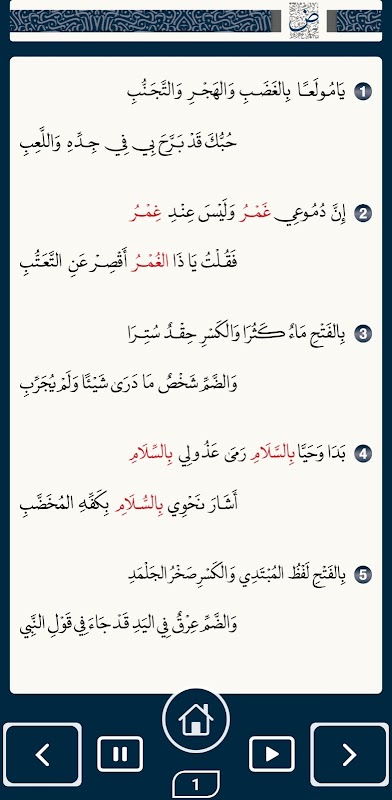 ض
1 يَامُولَعًا بِالغَضَبِ وَالهَجْرِ وَالتَّجَنُّبِ
حُبُّكَ قَدْ بَرَّحَ بِي فِي جِدِّهِ وَاللَّعِبِ
2 إِنَّ دُمُوعِي غَمْرُ وَلَيْسَ عِنْدِ غِمْرُ
فَقُلْتُ يَا ذَا الغُمْرُ أَقْصِرْ عَنِ التَّعَتُّبِ
3 بِالفَتْحِ مَاءُ كَثُرَا وَالكَسْرِ حِقْدُ سُتِرَا
وَالضَّمِّ شَخْصُ مَا دَرَى شَيْئًا وَلَمْ يُجَرِّبِ
4 بَدَا وَحَيَّا بِالسَّلَامِ رَمَى عَذُولِي بِالسِّلَامِ
أَشَارَ نَحْوِي بِالسُّلَامِ بِكَفِّهِ المُخَضَّبِ
5 بِالفَتْحِ لَفْظُ المُبْتَدِي وَالكَسْرِ صَخْرُ الجَلْمَدِ
وَالضَّمِّ عِرْقُ فِي اليَدِ قَدْ جَاءَ فِي قَوْلِ النَّبِي
1